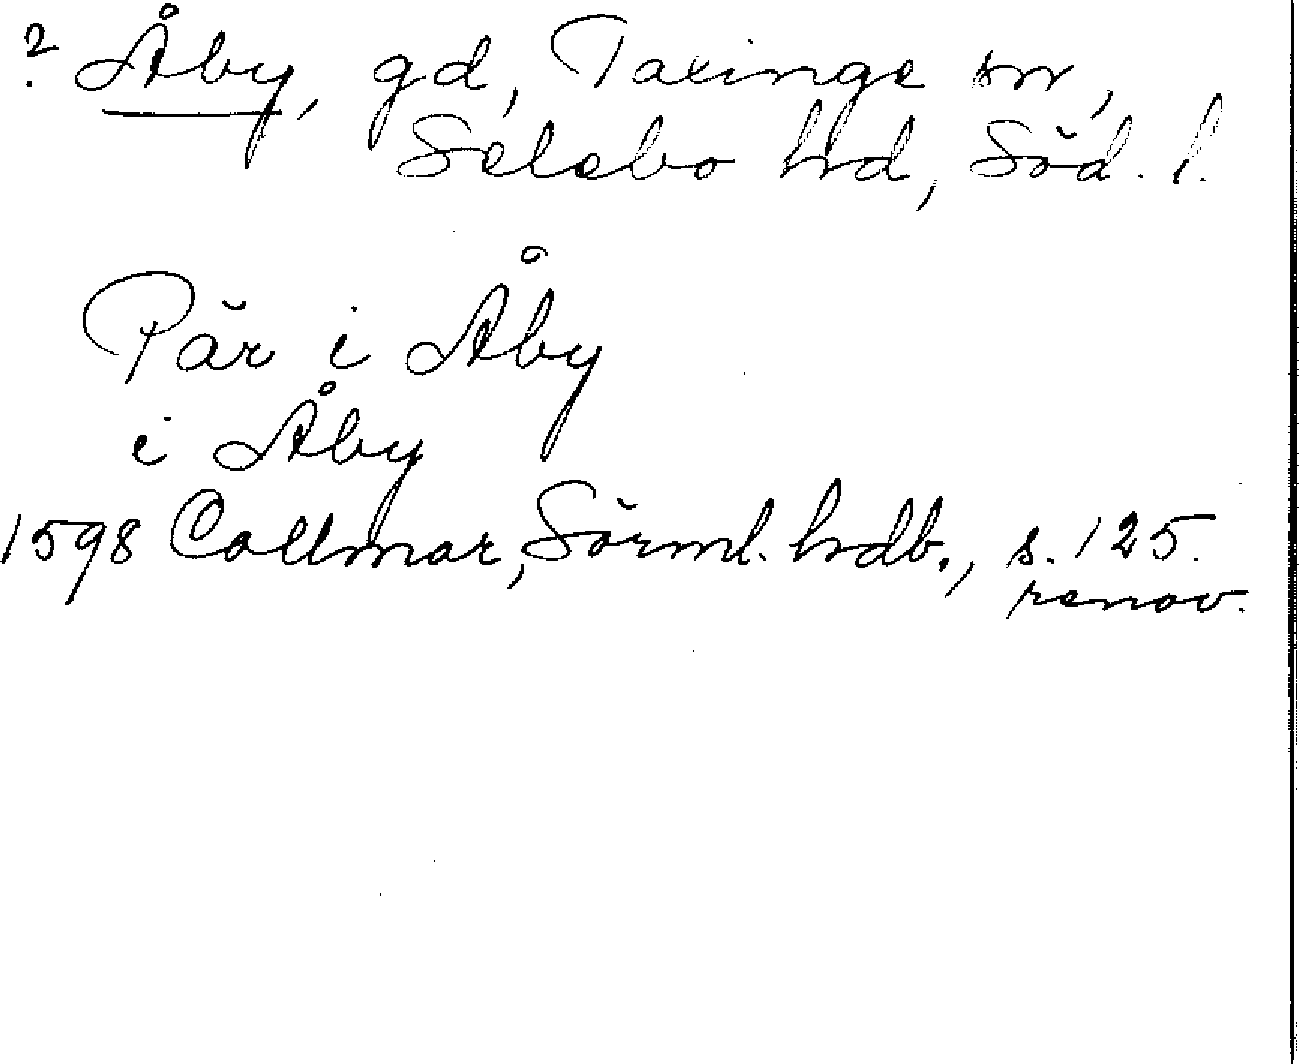 ? Åby, gd, Taxinge sn,
Selebo hd, Söd. l.
Pär i Åby
i Åby
1598 Collmar, Sörml. hdb., s. 125.
renov.